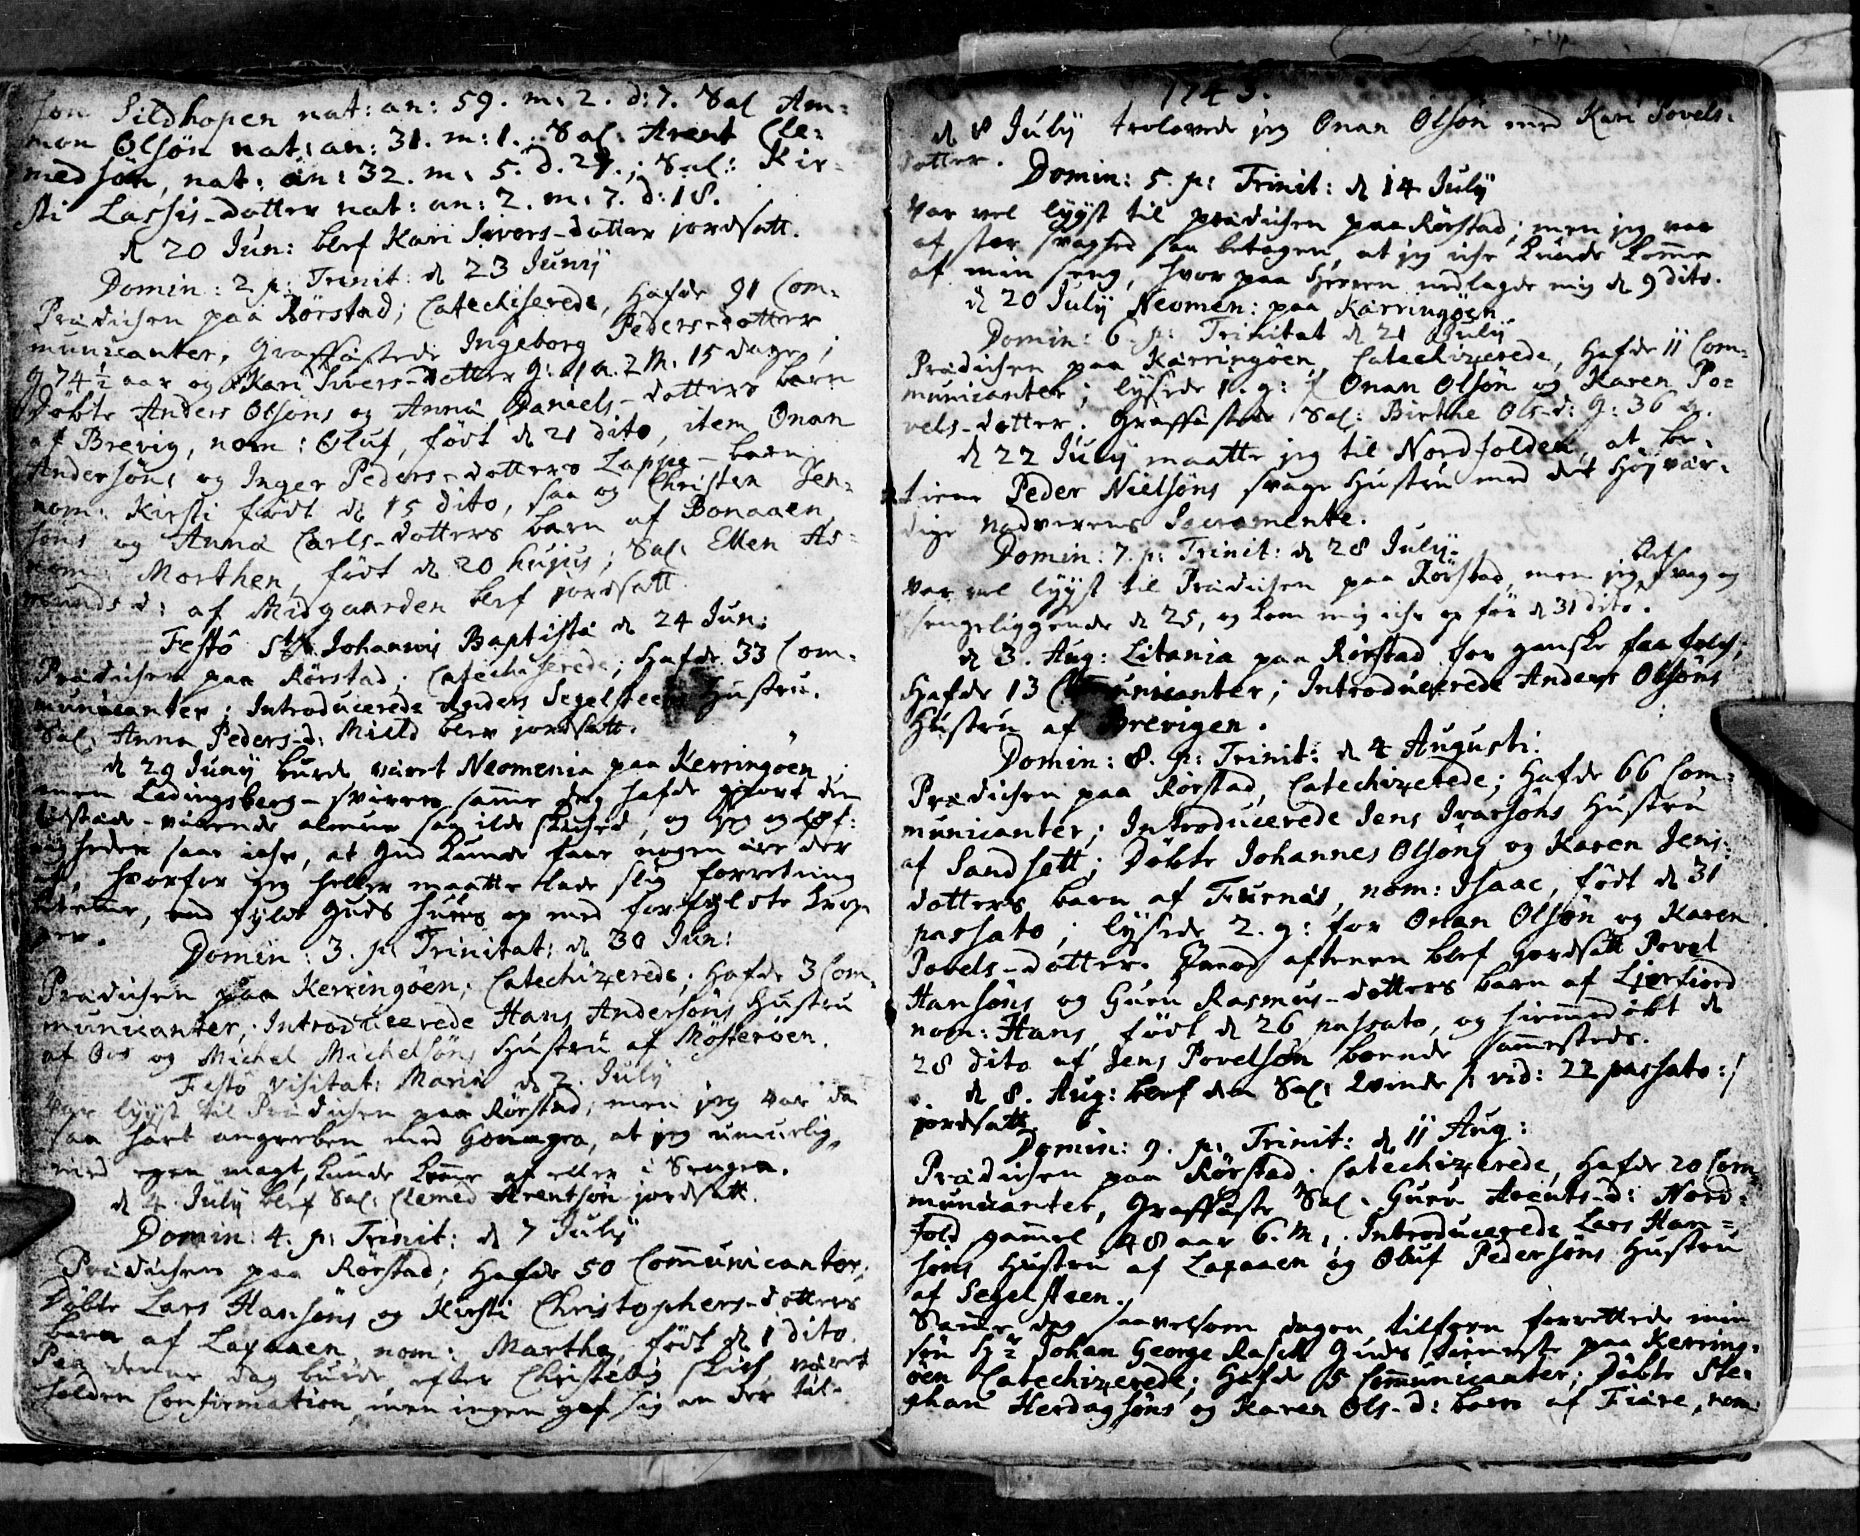 Jon Sildhopen nat: an: 59. m: 2. d: 7. Sal Am-
mon Olsön nat: an: 31. m: 1.; Sal: Arent Cle-
medsön, nat: an: 32. m: 5. d. 27.; Sal: Kir-
sti Lassis-datter nat: an: 2. m: 7. d: 18.
d 20 Jun: blef Kari Sivers-datter jordsatt.
Domin: 2. p: Trinit: d 23 Junij
Prædichen paa Rörstad; Catechiserede, Hafde 91 Com-
municanter, Graffæstede Ingeborg Peders-datter
g 74½ aar og Kari Sivers-datter g: 1 a. 2 M. 15 dage;
Döbte Anders Olsöns og Anna Daniels-datters barn
af Brevig, nom: Oluf, födt d 21 dito, item Onan
Andersöns og Inger Peders-datters Lappe-barn
nom: Kirsti födt d 15 dito, saa og Christen Jen-
söns og Anna Carls-datters barn af Bonaaen
nom: Morthen, födt d 20 hujus; Sal: Ellen As-
munds d: af Midgaarden blef jordsatt
Festô Sti Johannis Baptistæ d 24 Jun:
Prædichen paa Rörstad; Catechiserede; Hafde 33 Com-
municanter; Introducerede Anders Segelsteens Hustru.
Sal: Anna Peders-d: Mield blev jordsatt.
d 29 Junij burde været Neomenia paa Kerringöen
men Ledingsberg-svirren samme dag hafde giort den
tilstæde-værende almue saa ilde skiched, og
heden saae iche, at Gud kunde faae nogen ære der
af, hvorfor jeg heller maatte lade slig forretning
, end fyldt Guds Huus op med forfyldte Krop-
per.
Domin: 3. p: Trinitat: d 30 Jun:
Prædichen paa Kerringöen; Catechizerede; Hafde 3 Com-
municanter; Introducerede Hans Andersöns Hustru
af Oos og Michel Michelsöns Hustru af Mösteröen.
Festô Visitat: Mariæ d 2. July
Var lyyst til Prædichen paa Rörstad; men jeg var da
saa hart angreben med Gonagra, at jeg umuelig
med egen magt, kunde komme af eller i Sengen.
d 4 July blef Sal: Clemed Arentsön jordsatt.
Domin: 4. p: Trinit: d 7 July
Prædichen paa Rörstad; Hafde 50 Communicanter;
Döbte Lars Hansöns og Kirsti Christophers-datters
barn af Laxaaen nom: Martha, födt d 1 dito.
Paa denne dag burde efter Christelig skich været
holden Confirmation, men ingen gaf sig an der til.
1743.
d 8 July trolovede jeg Onan Olsön med Kari Povels-
datter.
Domin: 5. p: Trinit: d 14 July
Var vel lyyst til prædichen paa Rörstad; men jeg var
af stor svaghed saa betagen, at jeg iche kunde komme
af min seng, hvor paa Herren nedlagde mig d 9 dito.
d 20 July Neomen: paa Karringöen
Domin: 6. p: Trinitat d 21 July
Prædichen paa Karringöen, Catechizerede, Hafde 11 Com-
municanter; lysede 1. g: f Onan Olsön og Karen Po-
vels-datter. Graffæstede Sal: Birthe Ols-d: g: 36 a.
d 22 July maatte jeg til Nordfolden, at be-
tiene Peder Nielsöns svage Hustru med det Höjvær-
dige Nadverens Sacramente.
Domin: 7. p: Trinit: d 28 July.
Var vel lyyst til Prædichen paa Rörstad, men jeg blef svag og
sengeliggende d 25, og kom mig iche op för d 31 dito.
d 3. Aug: Litania paa Rörstad for ganske faa folch;
Hafde 13 Communicanter; Introducerede Anders Olsöns
Hustru af Brevigen.
Domin: 8. p: Trinit: d 4 Augusti.
Prædichen paa Rörstad, Catechizerede; Hafde 66 Com-
municanter; Introducerede Jens Ivarsöns Hustru
af Sandsett; Döbte Johannes Olsöns og Karen Jens-
datters barn af Furnæs, nom: Isaac, födt d 31
passato; lysede 2. g: for Onan Olsön og Karen
Povels-datter. aftenen blef jordsatt Povel
Hansöns og Guru Rasmus-datters barn af Ljerfiord
nom: Hans, födt d 26 passato, og hiemmedöbt d
28 dito af Jens Povelsön boende sammesteds.
d 8. Aug: blef den Sal: Qvinde /: vid: 22 passato:/
jordsatt.
Domin: 9. p: Trinit: d 11 Aug:
Prædichen paa Rörstad. Catechizerede, Hafde 20 Com-
municanter, Graffæste Sal. Guru Arents-d: Nord-
fold gammel 48 aar 6. M.. Introducerede Lars Han-
söns Hustru af Laxaaen og Oluf Pedersöns Hustru
af Segelsteen.
Samme dag saavelsom dagen tilforn forrettede min
sön Hr Johan George Rasch Guds tieneste paa Kerring-
öen Catechizerede; Hafde 5 Communicanter; Döbte Ste-
phan Herdagsöns og Karen Ols-d: barn af Fiære, nom: